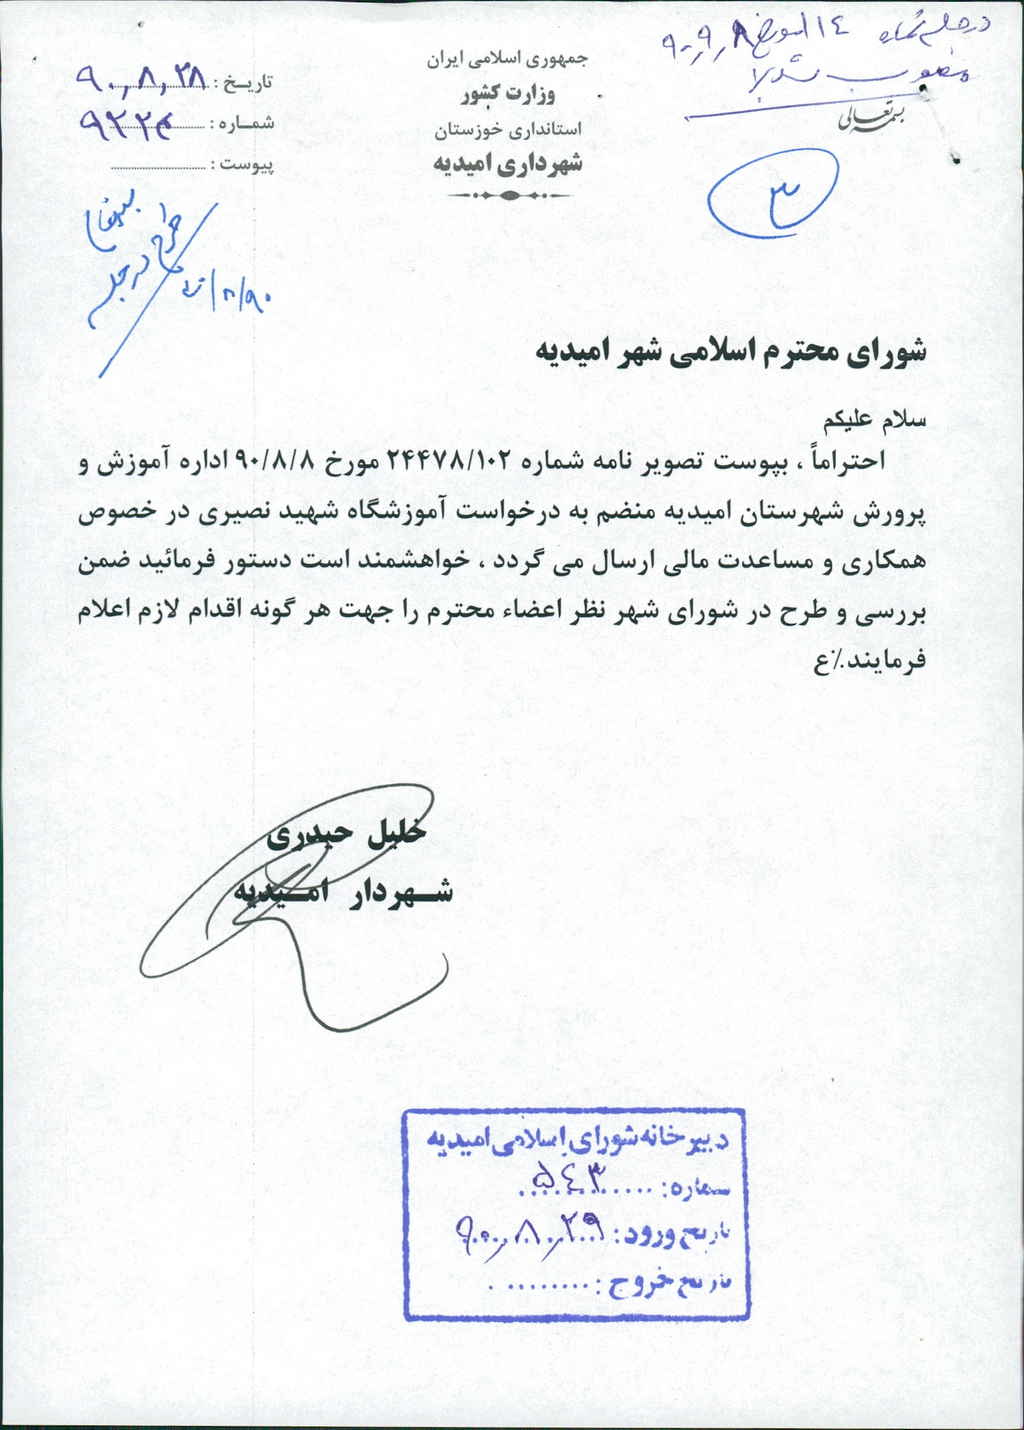 در جلسه شماره ۱۴ مورخ ۹۰/۹/۸
مصوب شد
بسمه تعالی
جمهوری اسلامی ایران
وزارت کشور
استانداری خوزستان
شهرداری امیدیه
تاریخ : ۹۰/۸/۲۸
شماره : ۹۲۲۴
پیوست :
۳
طرح در جلسه
شورای محترم اسلامی شهر امیدیه
سلام علیکم
احتراماً ، بپیوست تصویر نامه شماره ۲۴۴۷۸/۱۰۲ مورخ ۹۰/۸/۸ اداره آموزش و
پرورش شهرستان امیدیه منضم به درخواست آموزشگاه شهید نصیری در خصوص
همکاری و مساعدت مالی ارسال می گردد ، خواهشمند است دستور فرمائید ضمن
بررسی و طرح در شورای شهر نظر اعضاء محترم را جهت هر گونه اقدام لازم اعلام
فرمایند./ع
خلیل حیدری
شهردار امیدیه
دبیرخانه شورای اسلامی امیدیه
شماره: ۵۴۳
تاریخ ورود: ۹۰/۸/۲۹
تاریخ خروج: